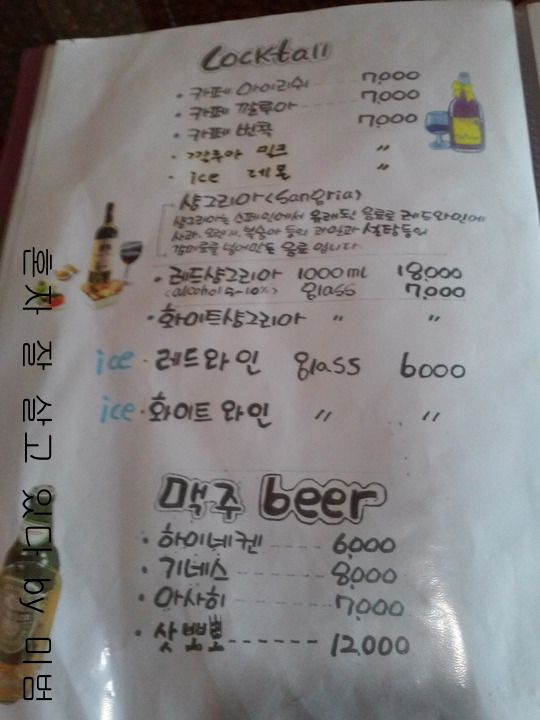 Cocktail
· 카페 아이리쉬 7,000
· 카페 깔루아 ---- 7,000
· 카페 번콕 7,000
· 깔루아 밀크 〃
· ice 레몬 〃
샹그리아(Sangria)
샹그리아는 스페인에서 유래된 음료로 레드와인에
사과, 오렌지, 복숭아 등의 과일과 설탕등의
감미료를 넣어만든 음료 입니다.
· 레드샹그리아 1000ml 18,000
(alcohol 5~10%) glass 7,000
· 화이트샹그리아 〃 〃
ice · 레드와인 glass 6000
ice · 화이트 와인 〃 〃
맥주 beer
· 하이네켄 ---- 6,000
· 기네스 ---- 8,000
· 아사히 ---- 7,000
· 삿뽀로 ------ 12,000
혼자 잘 살고 있다 by 미범